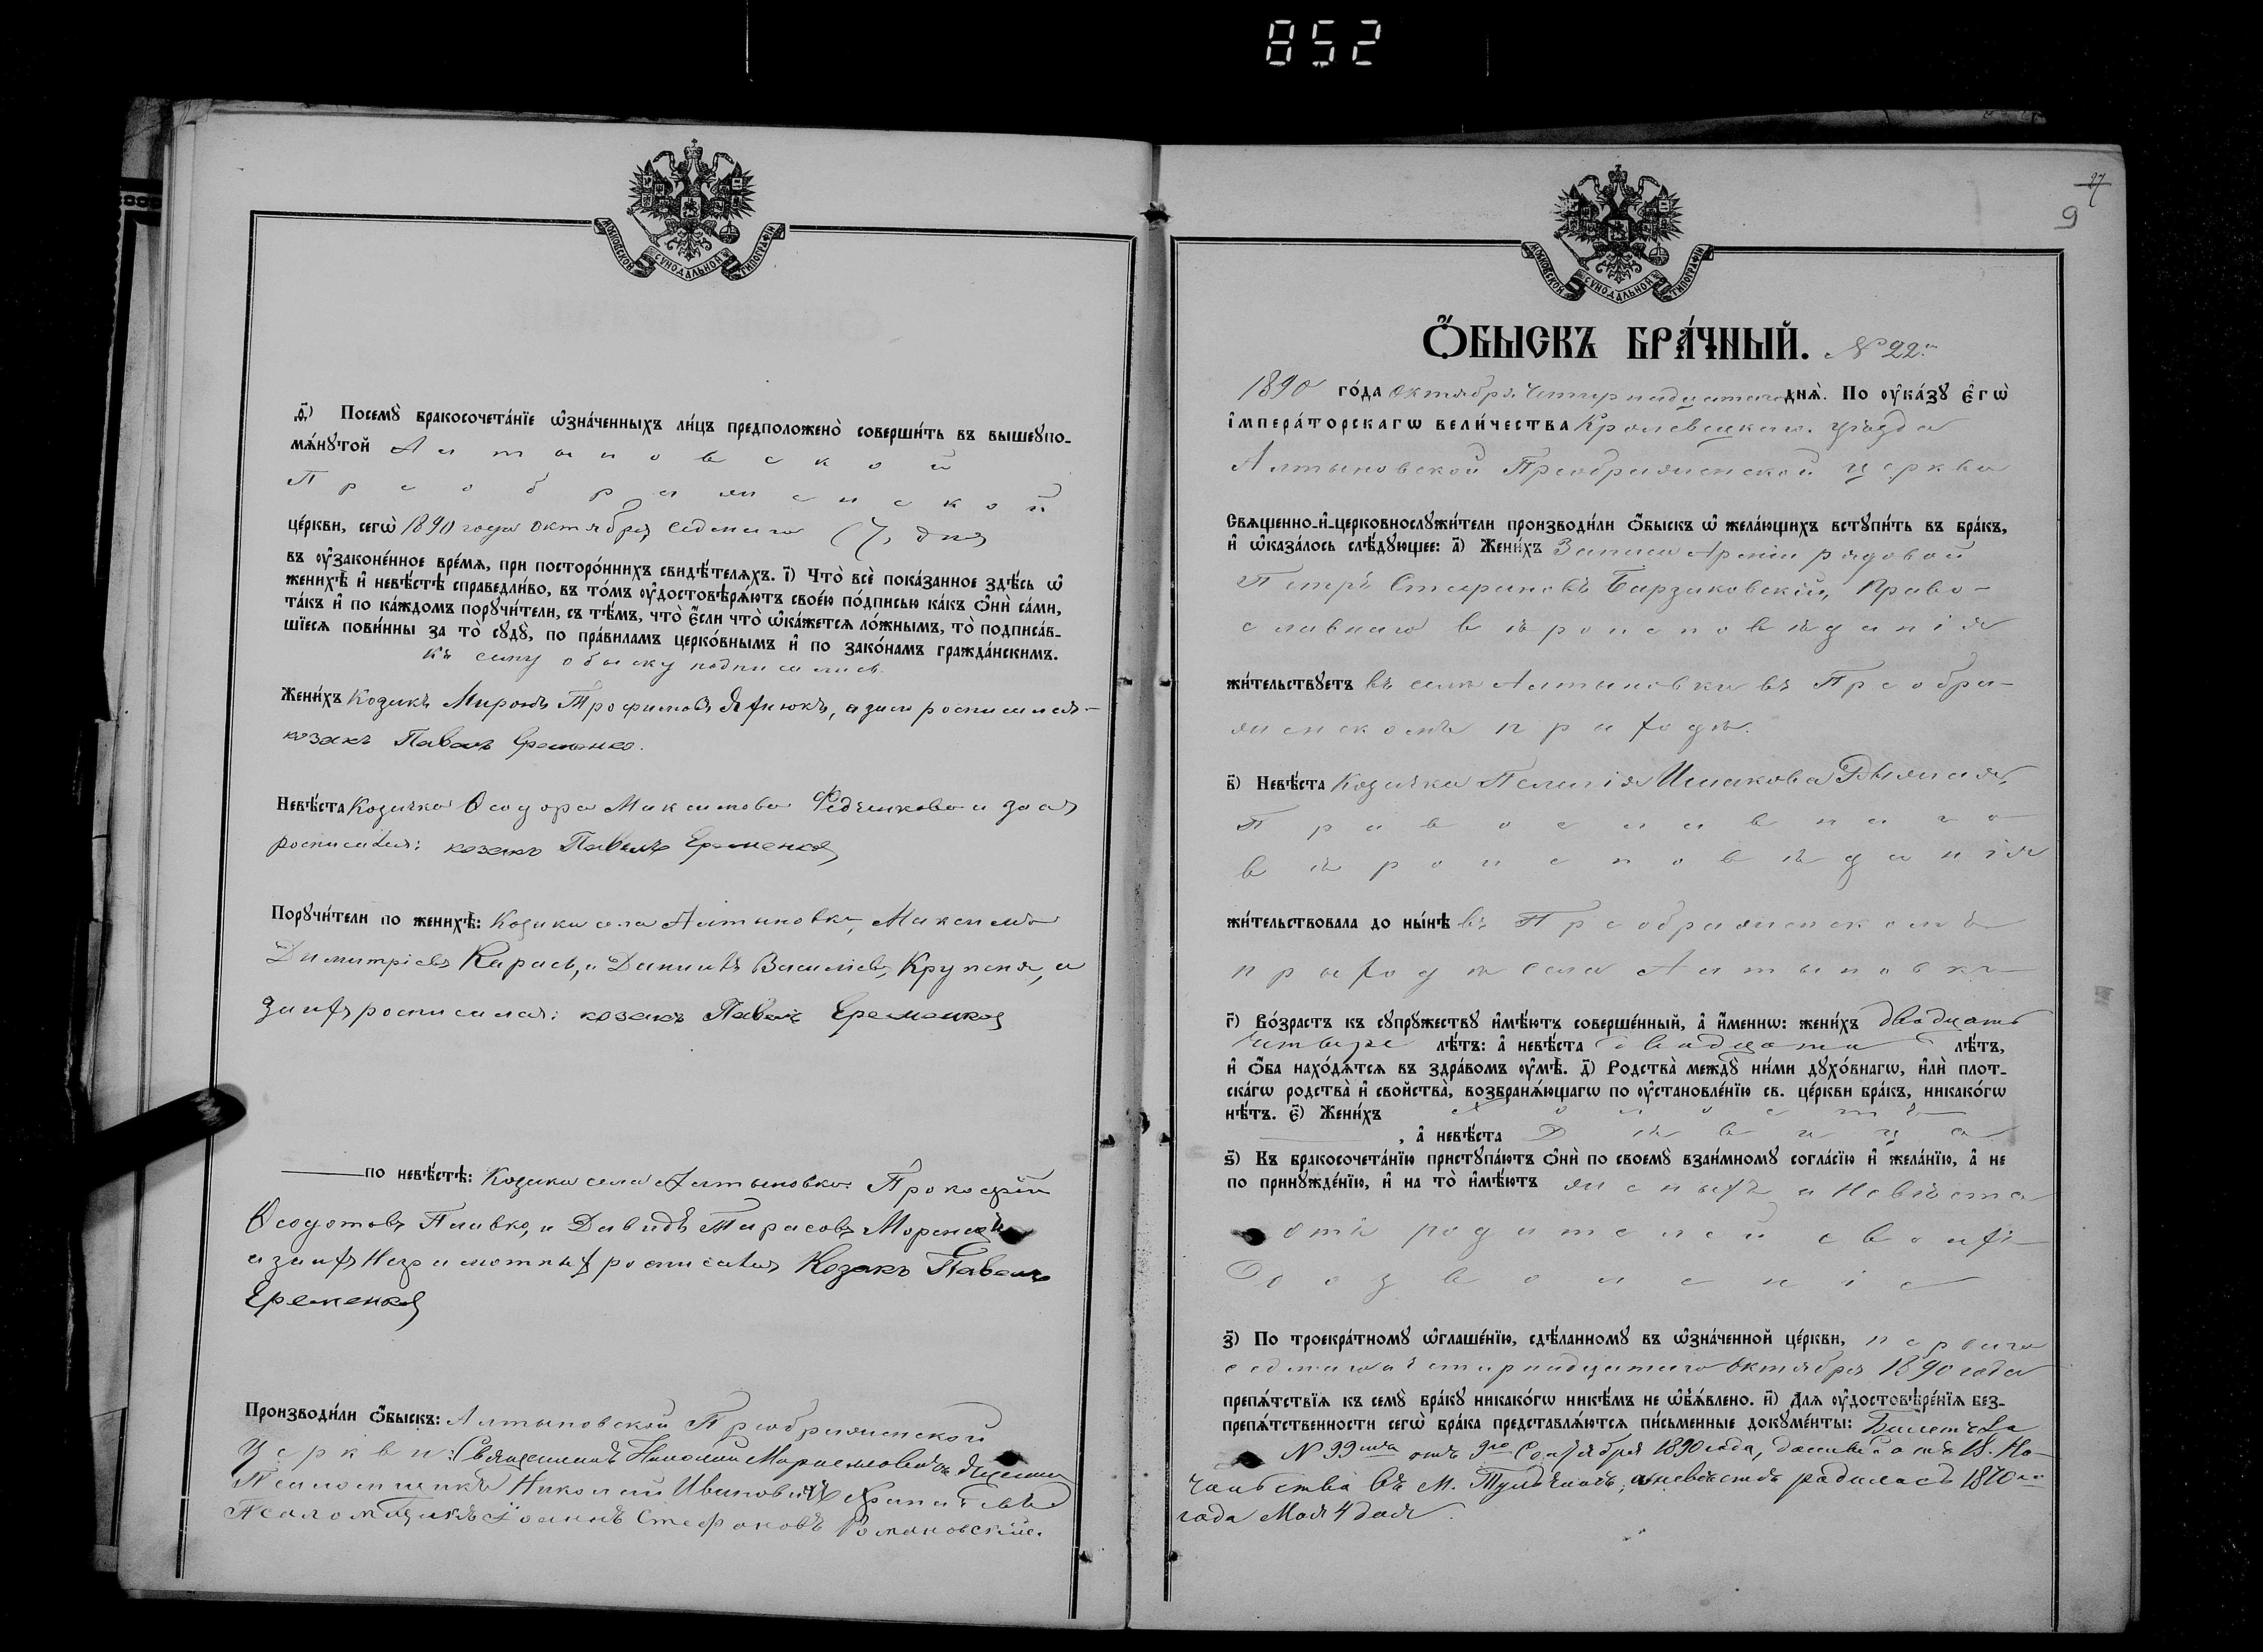 852
МОСКОВСКОЙ СѴНОДАЛЬНОЙ ТИПОГРАФІИ
ѳ҃) Посемꙋ̀ бракосочета́нїе ѡ҆зна́ченныхъ ли́цъ предположено̀ соверши́ть въ вышеꙋпо-
мѧ́нꙋтой Алтыновской
Преображенской
це́ркви, сегѡ̀ 1890 года Октября седмаго (7) дня
въ ᲂу҆законе́нное вре́мѧ, при посторо́ннихъ свидѣ́телѧхъ. і҃) Что̀ всѐ пока́занное здѣ́сь ѡ҆
женихѣ̀ и҆ невѣ́стѣ справедли́во, въ то́мъ ᲂу҆достовѣрѧ́ютъ свое́ю по́дписью ка́къ ѻ҆нѝ са́ми,
та́къ и҆ по ка́ждомъ порꙋчи́тели, съ тѣ́мъ, что̀ є҆́сли что̀ ѡ҆ка́жетсѧ ло́жнымъ, то̀ подписа́в-
шїесѧ пови́нны за то̀ сꙋдꙋ̀, по пра́виламъ церко́внымъ и҆ по зако́намъ гражда́нскимъ.
Къ сему обыску подписались
Жени́хъ Козакъ Миронъ Трофимовъ, а за него росписался
козакъ Павелъ Еременко.
Невѣ́ста Козачка Ѳеодора Максимова Федченкова а за нея
росписался: козакъ Павелъ Еременко
Порꙋчи́тели по женихѣ̀: Козаки села Алтыновки, Максимъ
Димитріевъ Карась, и Даніилъ Василіевъ Крупеня, а
за нихъ росписался: козакъ Павелъ Еременко
по невѣ́стѣ: Козаки села Алтыновки Прокофій
Ѳеодотовъ Пливко, и Давидъ Тарасовъ
а за нихъ неграмотныхъ росписался Козакъ Павелъ
Еременко
Производи́ли ѻ҆́быскъ: Алтыновской Преображенской
Церкви: Священникъ Николай
Псаломщикъ Николай Ивановичъ
Псаломщикъ Іоаннъ Стефановъ Романовскій.
27
9
МОСКОВСКОЙ СѴНОДАЛЬНОЙ ТИПОГРАФІИ
Ѻ҆́БЫСКЪ БРА́ЧНЫЙ. № 22.
1890 го́да Октября четырнадцатаго днѧ̀. По ᲂу҆ка́зꙋ є҆гѡ̀
і҆мпера́торскагѡ вели́чества Кролевецкаго уѣзда
Алтыновской Преображенской церкви
Свѧщенно-и҆-церковнослꙋжи́тели производи́ли ѻ҆́быскъ ѡ҆ жела́ющихъ встꙋпи́ть въ бра́къ,
и҆ ѡ҆каза́лось слѣ́дꙋющее: а҃) Жени́хъ Запаса Арміи рядовой
Петръ Стефановъ Барзаковскій, Право-
славнаго вѣроисповѣданія
жи́тельствꙋетъ въ селѣ Алтыновки въ Преобра-
женскомъ приходѣ.
в҃) Невѣ́ста Козачка Пелагія Исаакова,
Православнаго
вѣроисповѣданія
жи́тельствовала до ны́нѣ въ Преображенскомъ
приходѣ села Алтыновки
г҃) Во́зрастъ къ сꙋпрꙋ́жествꙋ и҆мѣ́ютъ соверше́нный, а҆ и҆́меннѡ: жени́хъ двадцать
четыре лѣ́тъ: а҆ невѣ́ста двадцати лѣ́тъ,
и҆ ѻ҆́ба нахо́дѧтсѧ въ здра́вомъ ᲂу҆мѣ̀. д҃) Родства̀ междꙋ̀ ни́ми дꙋхо́внагѡ, и҆лѝ плот-
ска́гѡ родства̀ и҆ свойства̀, возбранѧ́ющагѡ по ᲂу҆становле́нїю св. це́ркви бра́къ, никако́гѡ
нѣ́тъ. є҃) Жени́хъ Холостъ
, а҆ невѣ́ста Дѣвица
ѕ҃) Къ бракосочета́нїю пристꙋпа́ютъ ѻ҆нѝ по своемꙋ̀ взаи́мномꙋ согла́сїю и҆ жела́нїю, а҆ не
по принꙋжде́нїю, и҆ на то̀ и҆мѣ́ютъ женихъ и невѣста
отъ родителей своихъ
Дозволеніе
з҃) По троекра́тномꙋ ѡ҆глаше́нїю, сдѣ́ланномꙋ въ ѡ҆зна́ченной це́ркви, перваго
седмаго и четырнадцатаго Октября 1890 года
препѧ́тствїѧ къ семꙋ̀ бра́кꙋ никако́гѡ никѣ́мъ не ѡ҆б̾ѧ́влено. и҃) Длѧ ᲂу҆достовѣре́нїѧ без-
препѧ́тственности сегѡ̀ бра́ка представлѧ́ютсѧ пи́сьменные докꙋме́нты: Билетъ за
№ 99 отъ 9го Сентября 1890 года, данный отъ В. На-
чальства въ М. Тульчинъ, а невѣста родилась 1870го
года Мая 4 дня.